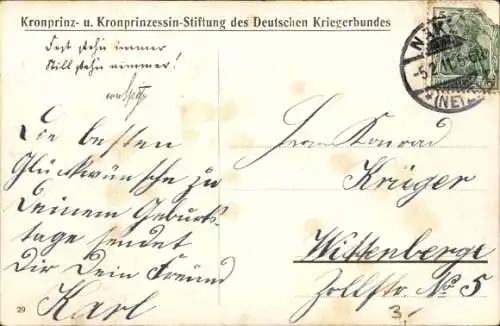 Kronprinz- u. Kronprinzessin-Stiftung des Deutschen Kriegerbundes
Fest stehn immer
Still stehn nimmer!
Die besten
Glückwünsche zu
Deinem Geburts-
tage sendet
Dir Dein Freund
Karl
29
NAKE
-5.2.11.5-6
*(NETZE
Herrn Konrad
Krüger
Wittenberge
Zollstr. No 5
3.-